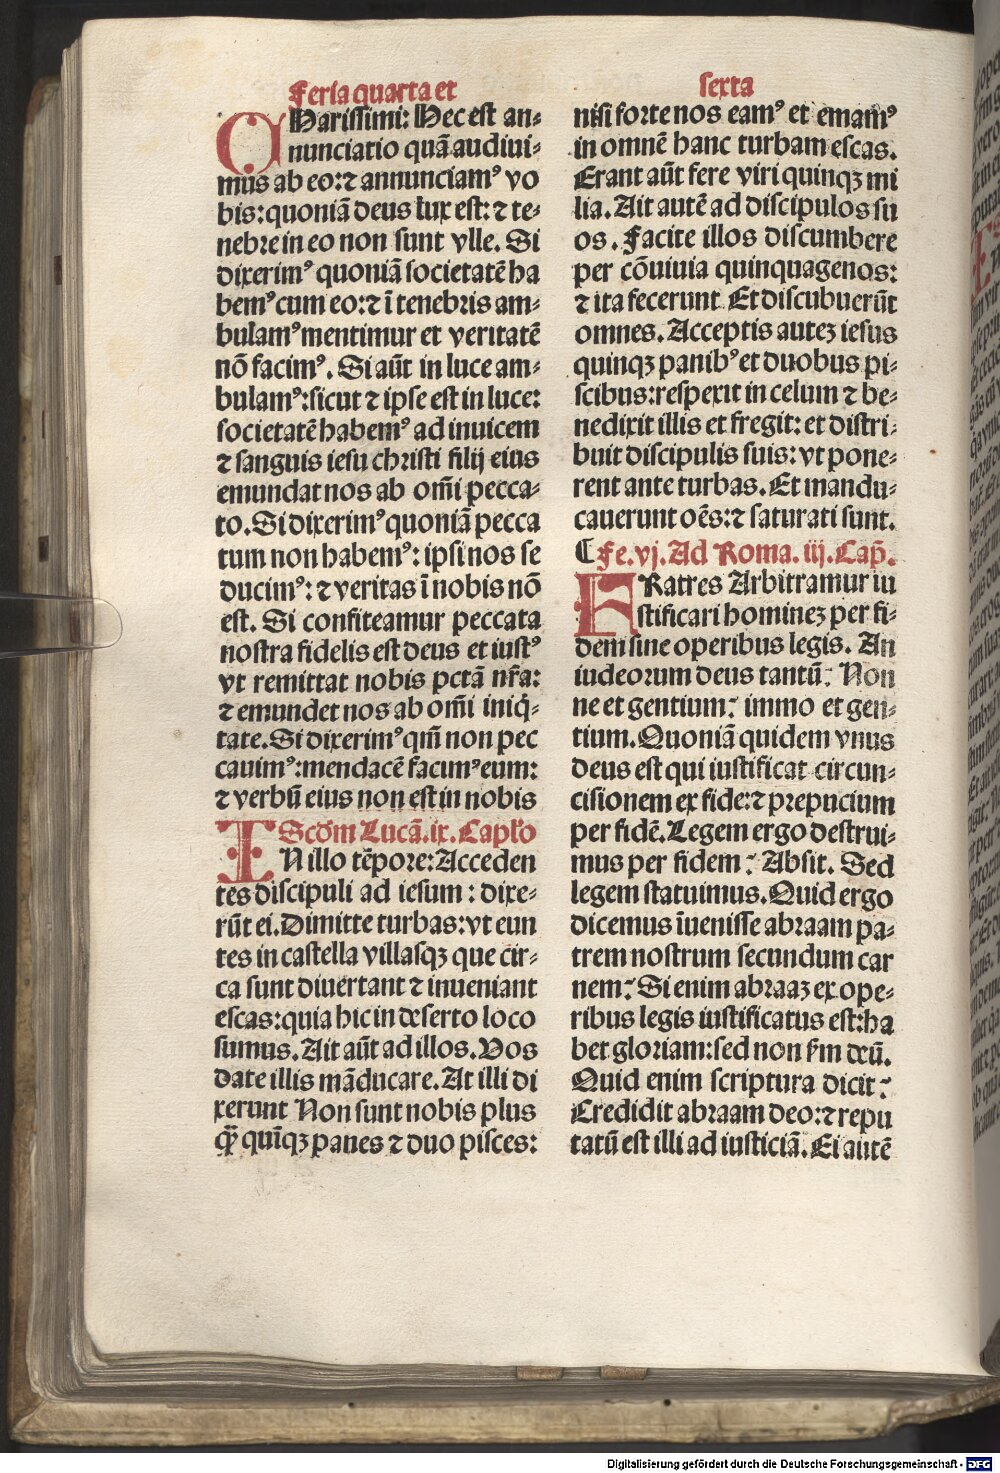 Feria quarta et
CHarissimi: Hec est an⸗
nunciatio quā audiui⸗
mus ab eo: ⁊ annunciamꝰ vo
bis: quoniā deus lux est: ⁊ te⸗
nebre in eo non sunt vlle. Si
dixerimꝰ quoniā societatē ha
bemꝰ cum eo: ⁊ ī tenebris am⸗
bulamꝰ mentimur et veritatē
nō facimꝰ. Si aūt in luce am⸗
bulamꝰ: sicut ⁊ ipse est in luce:
societatē habemꝰ ad inuicem
⁊ sanguis iesu christi filij eius
emundat nos ab om̄i pecca⸗
to. Si dixerimꝰ quoniā pecca
tum non habemꝰ: ipsi nos se
ducimꝰ: ⁊ veritas ī nobis nō
est. Si confiteamur peccata
nostra fidelis est deus et iustꝰ
vt remittat nobis pctā nr̄a:
⁊ emundet nos ab om̄i iniq̇⸗
tate. Si dixerimꝰ qm̄ non pec
cauimꝰ: mendacē facimꝰ eum:
⁊ verbū eius non est in nobis
Scd̄m Lucā. ix. Capl'o
IN illo tēpore: Acceden
tes discipuli ad iesum: dixe⸗
rūt ei. Dimitte turbas: vt eun
tes in castella villasqꝫ que cir⸗
ca sunt diuertant ⁊ inueniant
escas: quia hic in deserto loco
sumus. Ait aūt ad illos. Vos
date illis māducare. At illi di
xerunt Non sunt nobis plus
qꝫ̄ quīqꝫ panes ⁊ duo pisces:
sexta
nisi forte nos eamꝰ et emamꝰ
in omnē hanc turbam escas.
Erant aūt fere viri quinqꝫ mi
lia. Ait autē ad discipulos su
os. Facite illos discumbere
per cōuiuia quinquagenos:
⁊ ita fecerunt Et discubuerūt
omnes. Acceptis autez iesus
quinqꝫ panibꝰ et duobus pi⸗
scibus: respexit in celum ⁊ be⸗
nedixit illis et fregit: et distri⸗
buit discipulis suis: vt pone⸗
rent ante turbas. Et mandu⸗
cauerunt oēs: ⁊ saturati sunt.
¶ Fe. vj. Ad Roma. iij. Cap̄.
FRatres Arbitramur iu
stificari hominez per fi⸗
dem sine operibus legis. An
iudeorum deus tantū: Non
ne et gentium: immo et gen⸗
tium. Quoniā quidem vnus
deus est qui iustificat circun⸗
cisionem ex fide: ⁊ prepucium
per fidē. Legem ergo destrui⸗
mus per fidem: Absit. Sed
legem statuimus. Quid ergo
dicemus īuenisse abraam pa⸗
trem nostrum secundum car
nem: Si enim abraaz ex ope⸗
ribus legis iustificatus est: ha
bet gloriam: sed non ẜm deū.
Quid enim scriptura dicit:
Credidit abraam deo: ⁊ repu
tatū est illi ad iusticiā. Ei autē
Digitalisierung gefördert durch die Deutsche Forschungsgemeinschaft - DFG